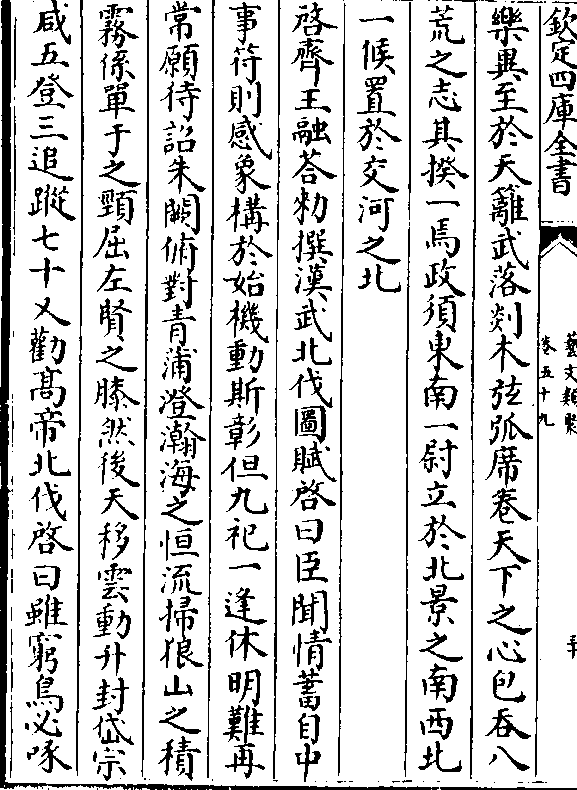 欽定四庫全書
藝文類聚
卷五十九
樂與至於天籬武落剡木弦弧席卷天下之心包吞八
荒之志其揆一焉政須東南一尉立於北景之南西北
一候置於交河之北
啓齊王融荅勑撰漢武北伐圖賦啓曰臣聞情蓄自中
事符則感象構於始機動斯彰但九祀一逢休明難再
常願待詔朱闕俯對青蒲澄瀚海之恒流掃狼山之積
霧係單于之頸屈左賢之膝然後天移雲動升封岱宗
咸五登三追蹤七十又勸髙帝北伐啓曰雖窮鳥必啄